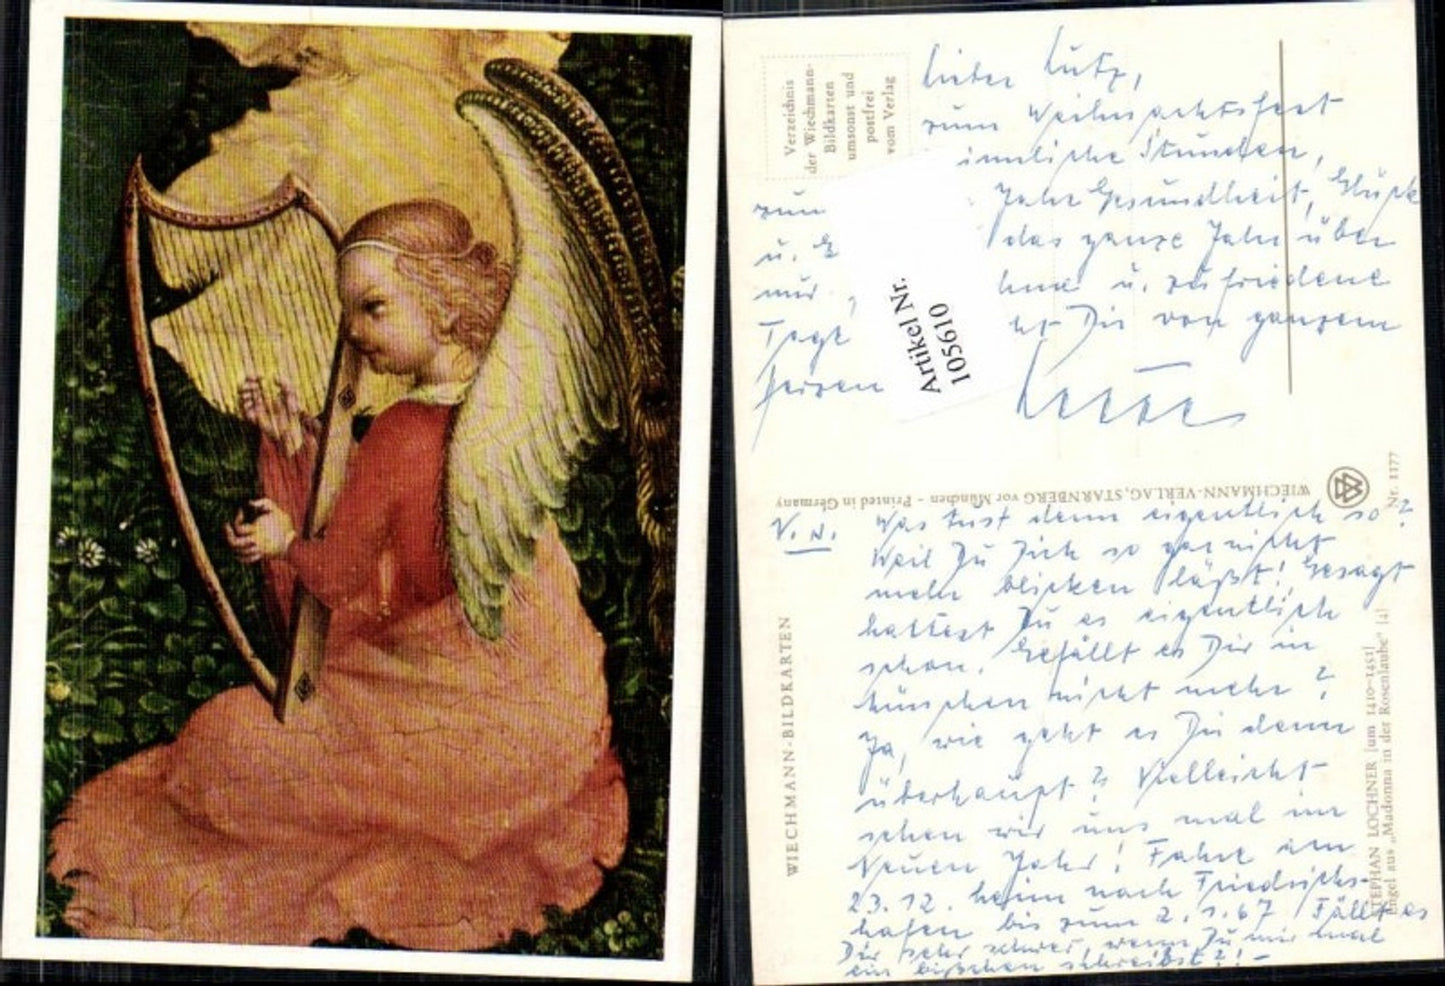 Verzeichnis
der Wiechmann-
Bildkarten
umsonst und
postfrei
vom Verlag
Lieber Lutz,
zum Weihnachtsfest
innliche Stunden,
zum Jahr Gesundheit, Glück
u. E das ganze Jahr über
nur hme u. zufriedene
Tage ht Dir von ganzem
Herzen
Artikel Nr.
105610
WIECHMANN-VERLAG, STARNBERG vor München – Printed in Germany
Nr. 1177
WIECHMANN-BILDKARTEN
STEPHAN LOCHNER [um 1410-1451]
Engel aus „Madonna in der Rosenlaube“ [4]
Was tust denn eigentlich so?
Weil Du Dich so gar nicht
mehr blicken läßt! Gesagt
hattest Du es eigentlich
schon. Gefällt es Dir in
München nicht mehr?
Ja, wie geht es Dir denn
überhaupt? Vielleicht
sehen wir uns mal im
Neuen Jahr! Fahre am
23.12. heim nach Friedrichs-
hafen bis zum 2.1.67 Fällt es
Dir sehr schwer, wenn Du mir mal
ein bißchen schreibst?! –